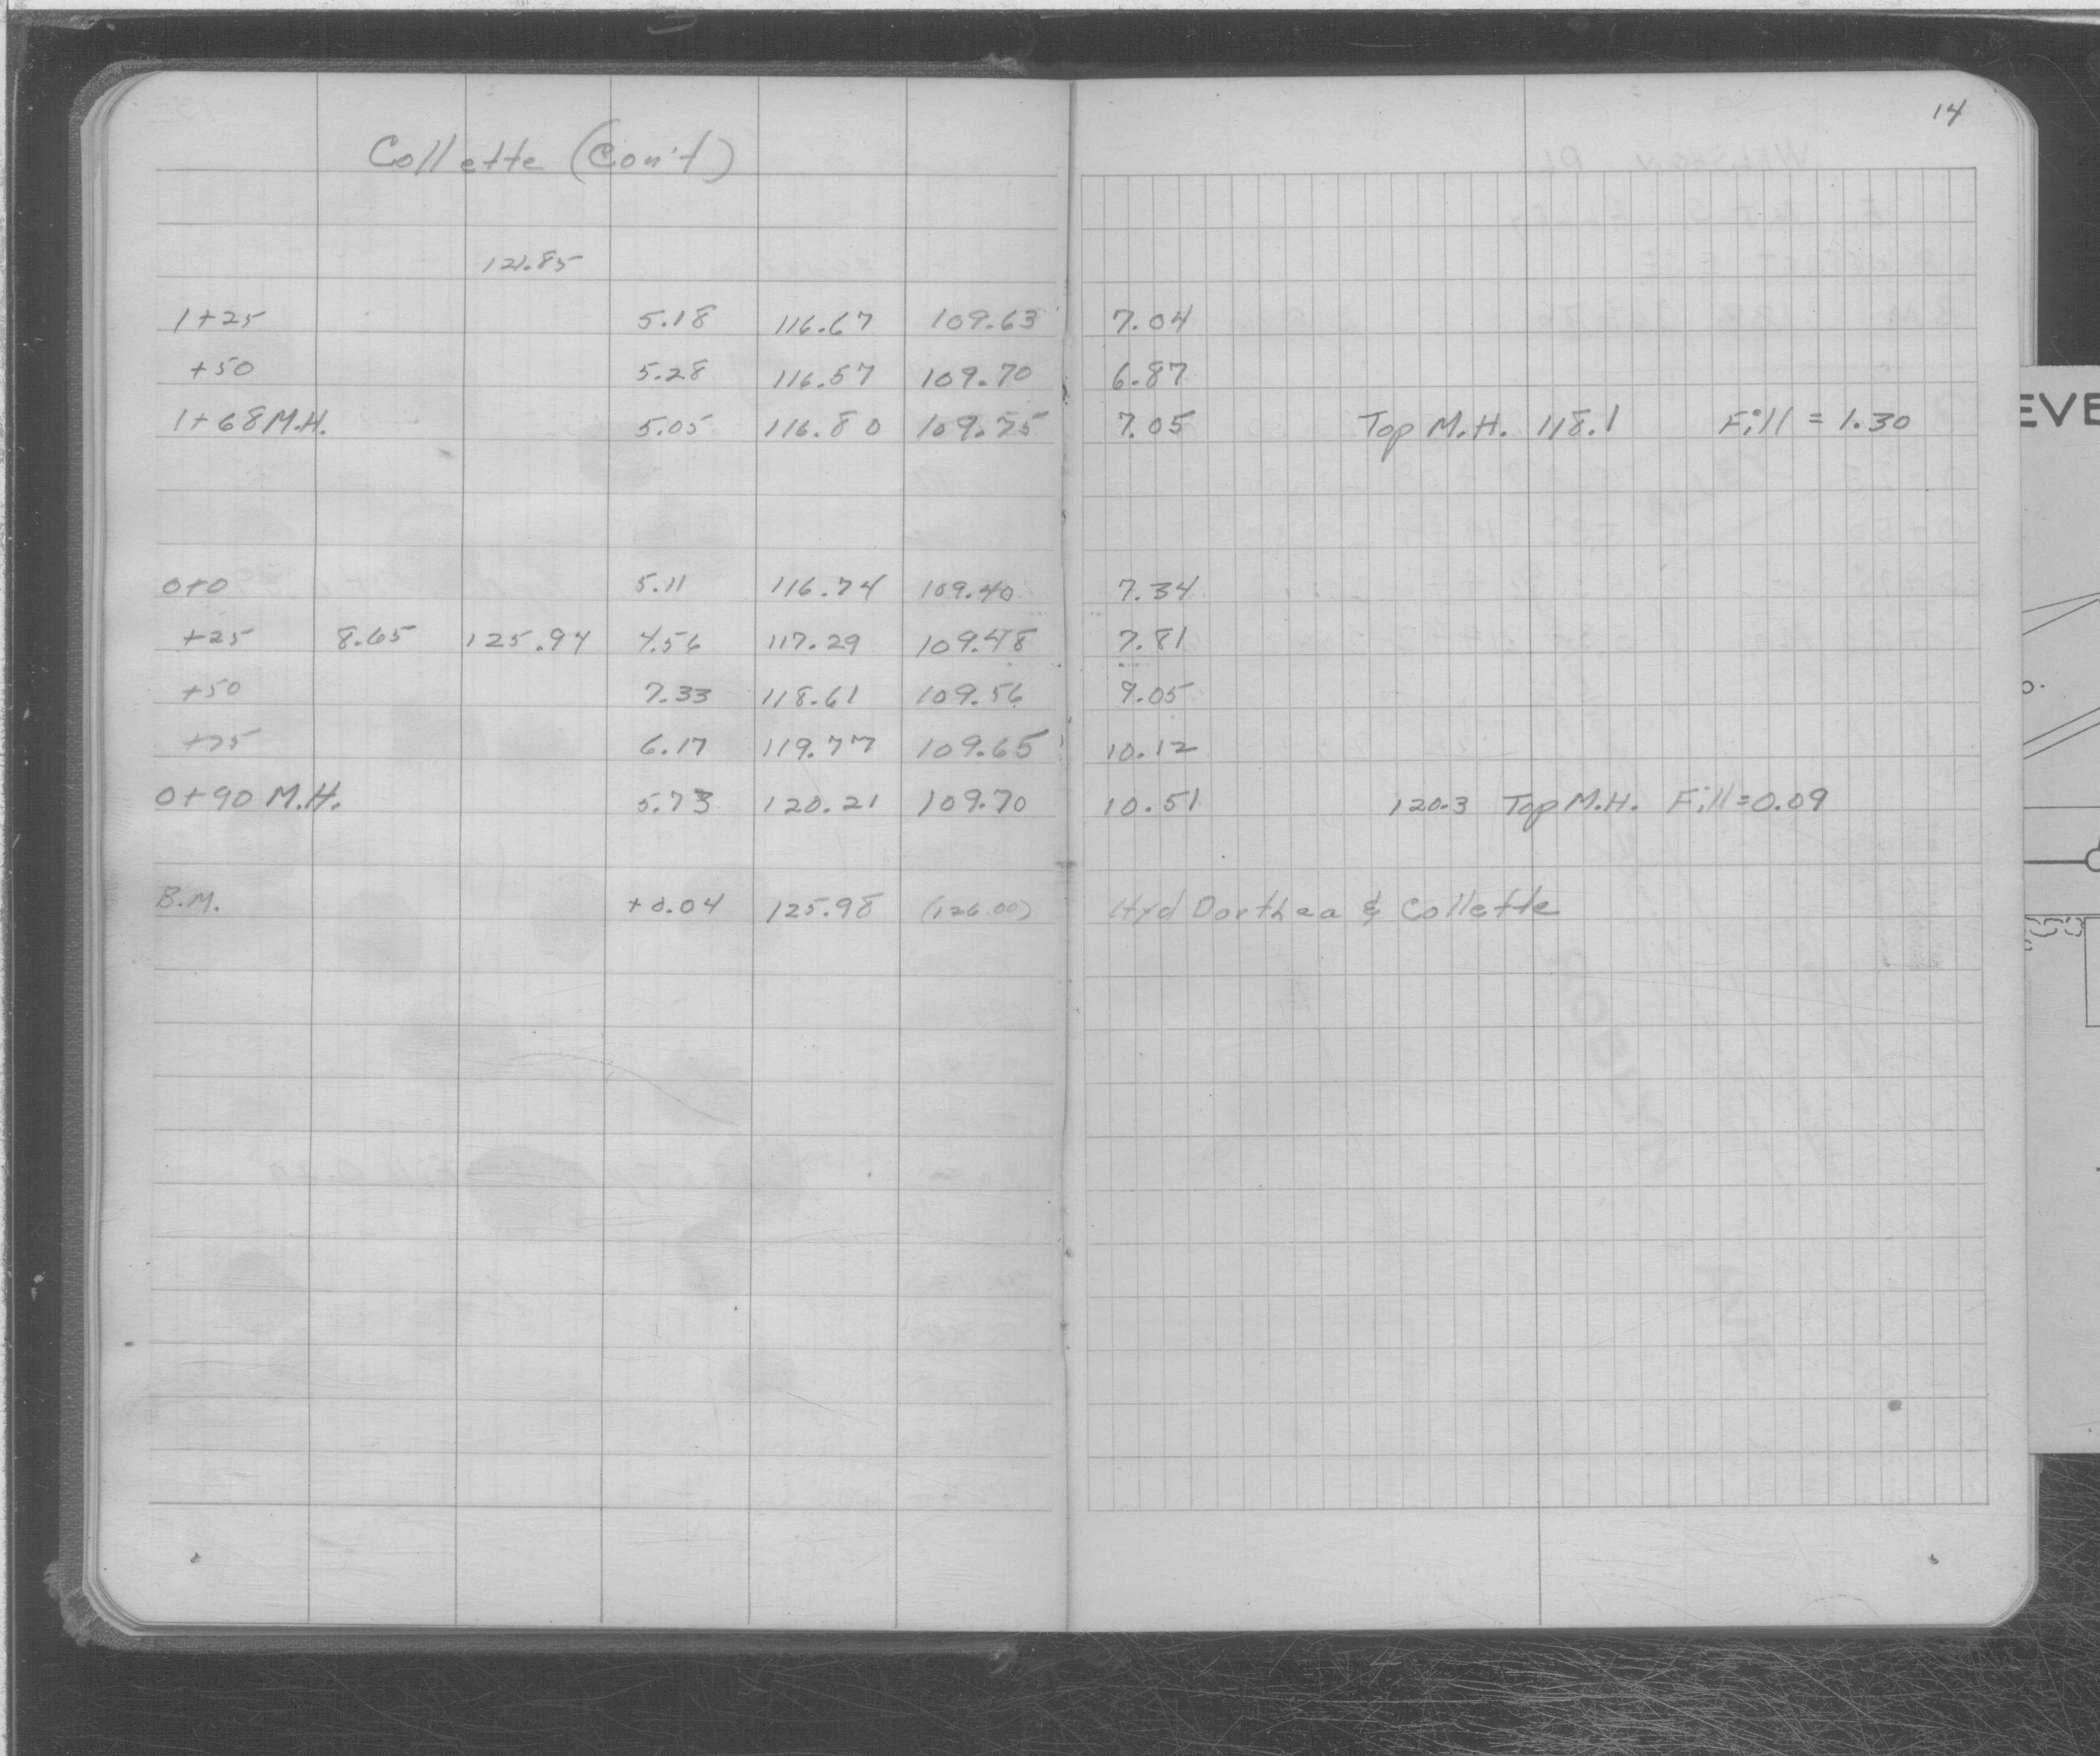 14
Collette (Con't)
121.85
1+25 5.18 116.67 109.63 7.04
+50 5.28 116.57 109.70 6.87
1+68 M.H. 5.05 116.80 109.75 7.05 Top M.H. 118.1 Fill = 1.30
0+0 5.11 116.74 109.40 7.34
+25 8.65 125.94 4.56 117.29 109.48 7.81
+50 7.33 118.61 109.56 9.05
+75 6.17 119.77 109.65 10.12
0+90 M.H. 5.73 120.21 109.70 10.51 120.3 Top M.H. Fill=0.09
B.M. +0.04 125.98 (126.00) Hyd Dorthea & Collette
EVE